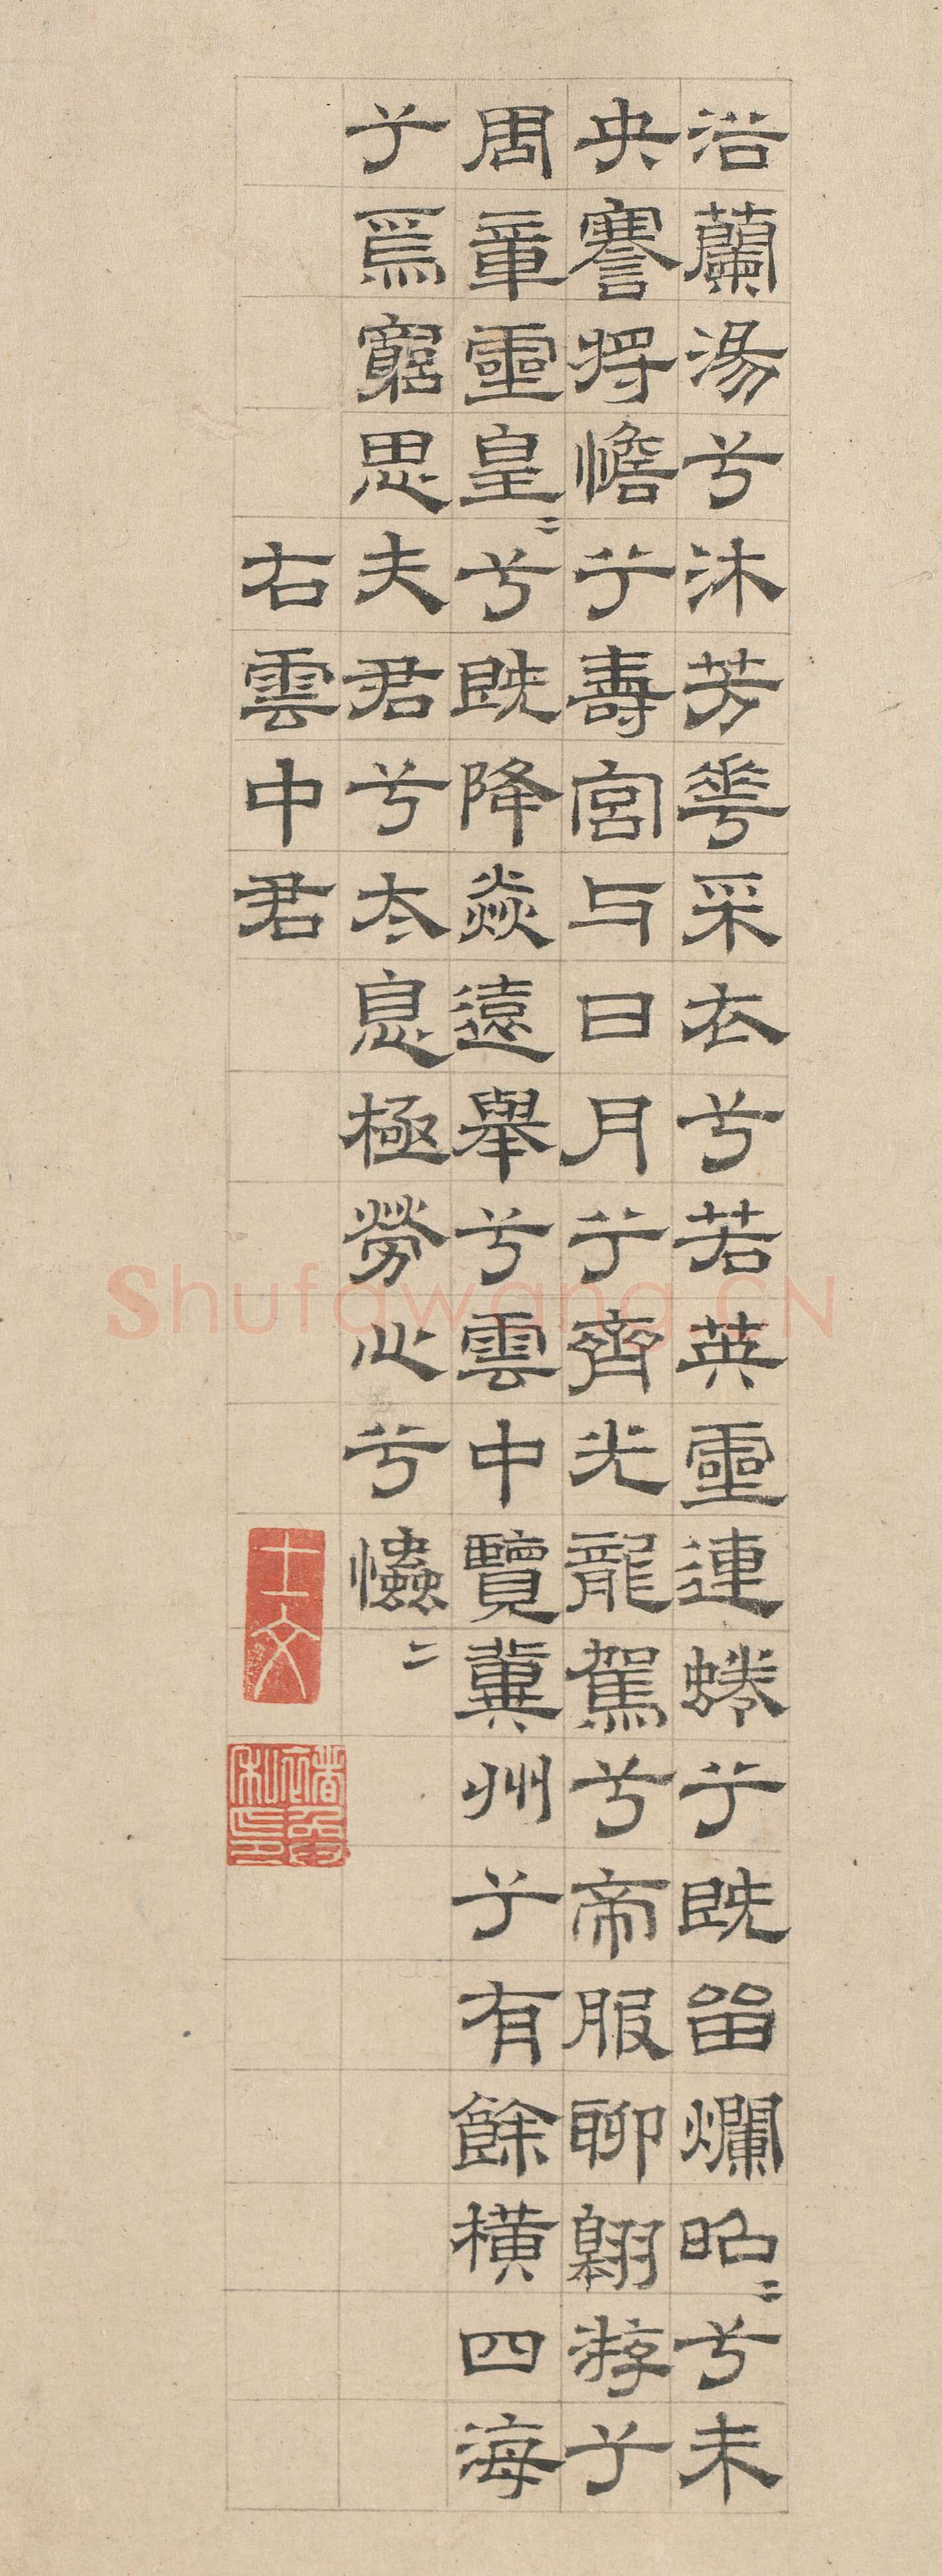 浴蘭湯兮沐芳華采衣兮若英靈連蜷兮既留爛昭〻兮未
央謇將憺兮壽宮与日月兮齊光龍駕兮帝服聊翱游兮
周章靈皇〻兮既降焱遠舉兮雲中覽冀州兮有餘橫四海
兮焉窮思夫君兮太息極勞心兮𢥞〻
右雲中君
士文
Shufawang.CN